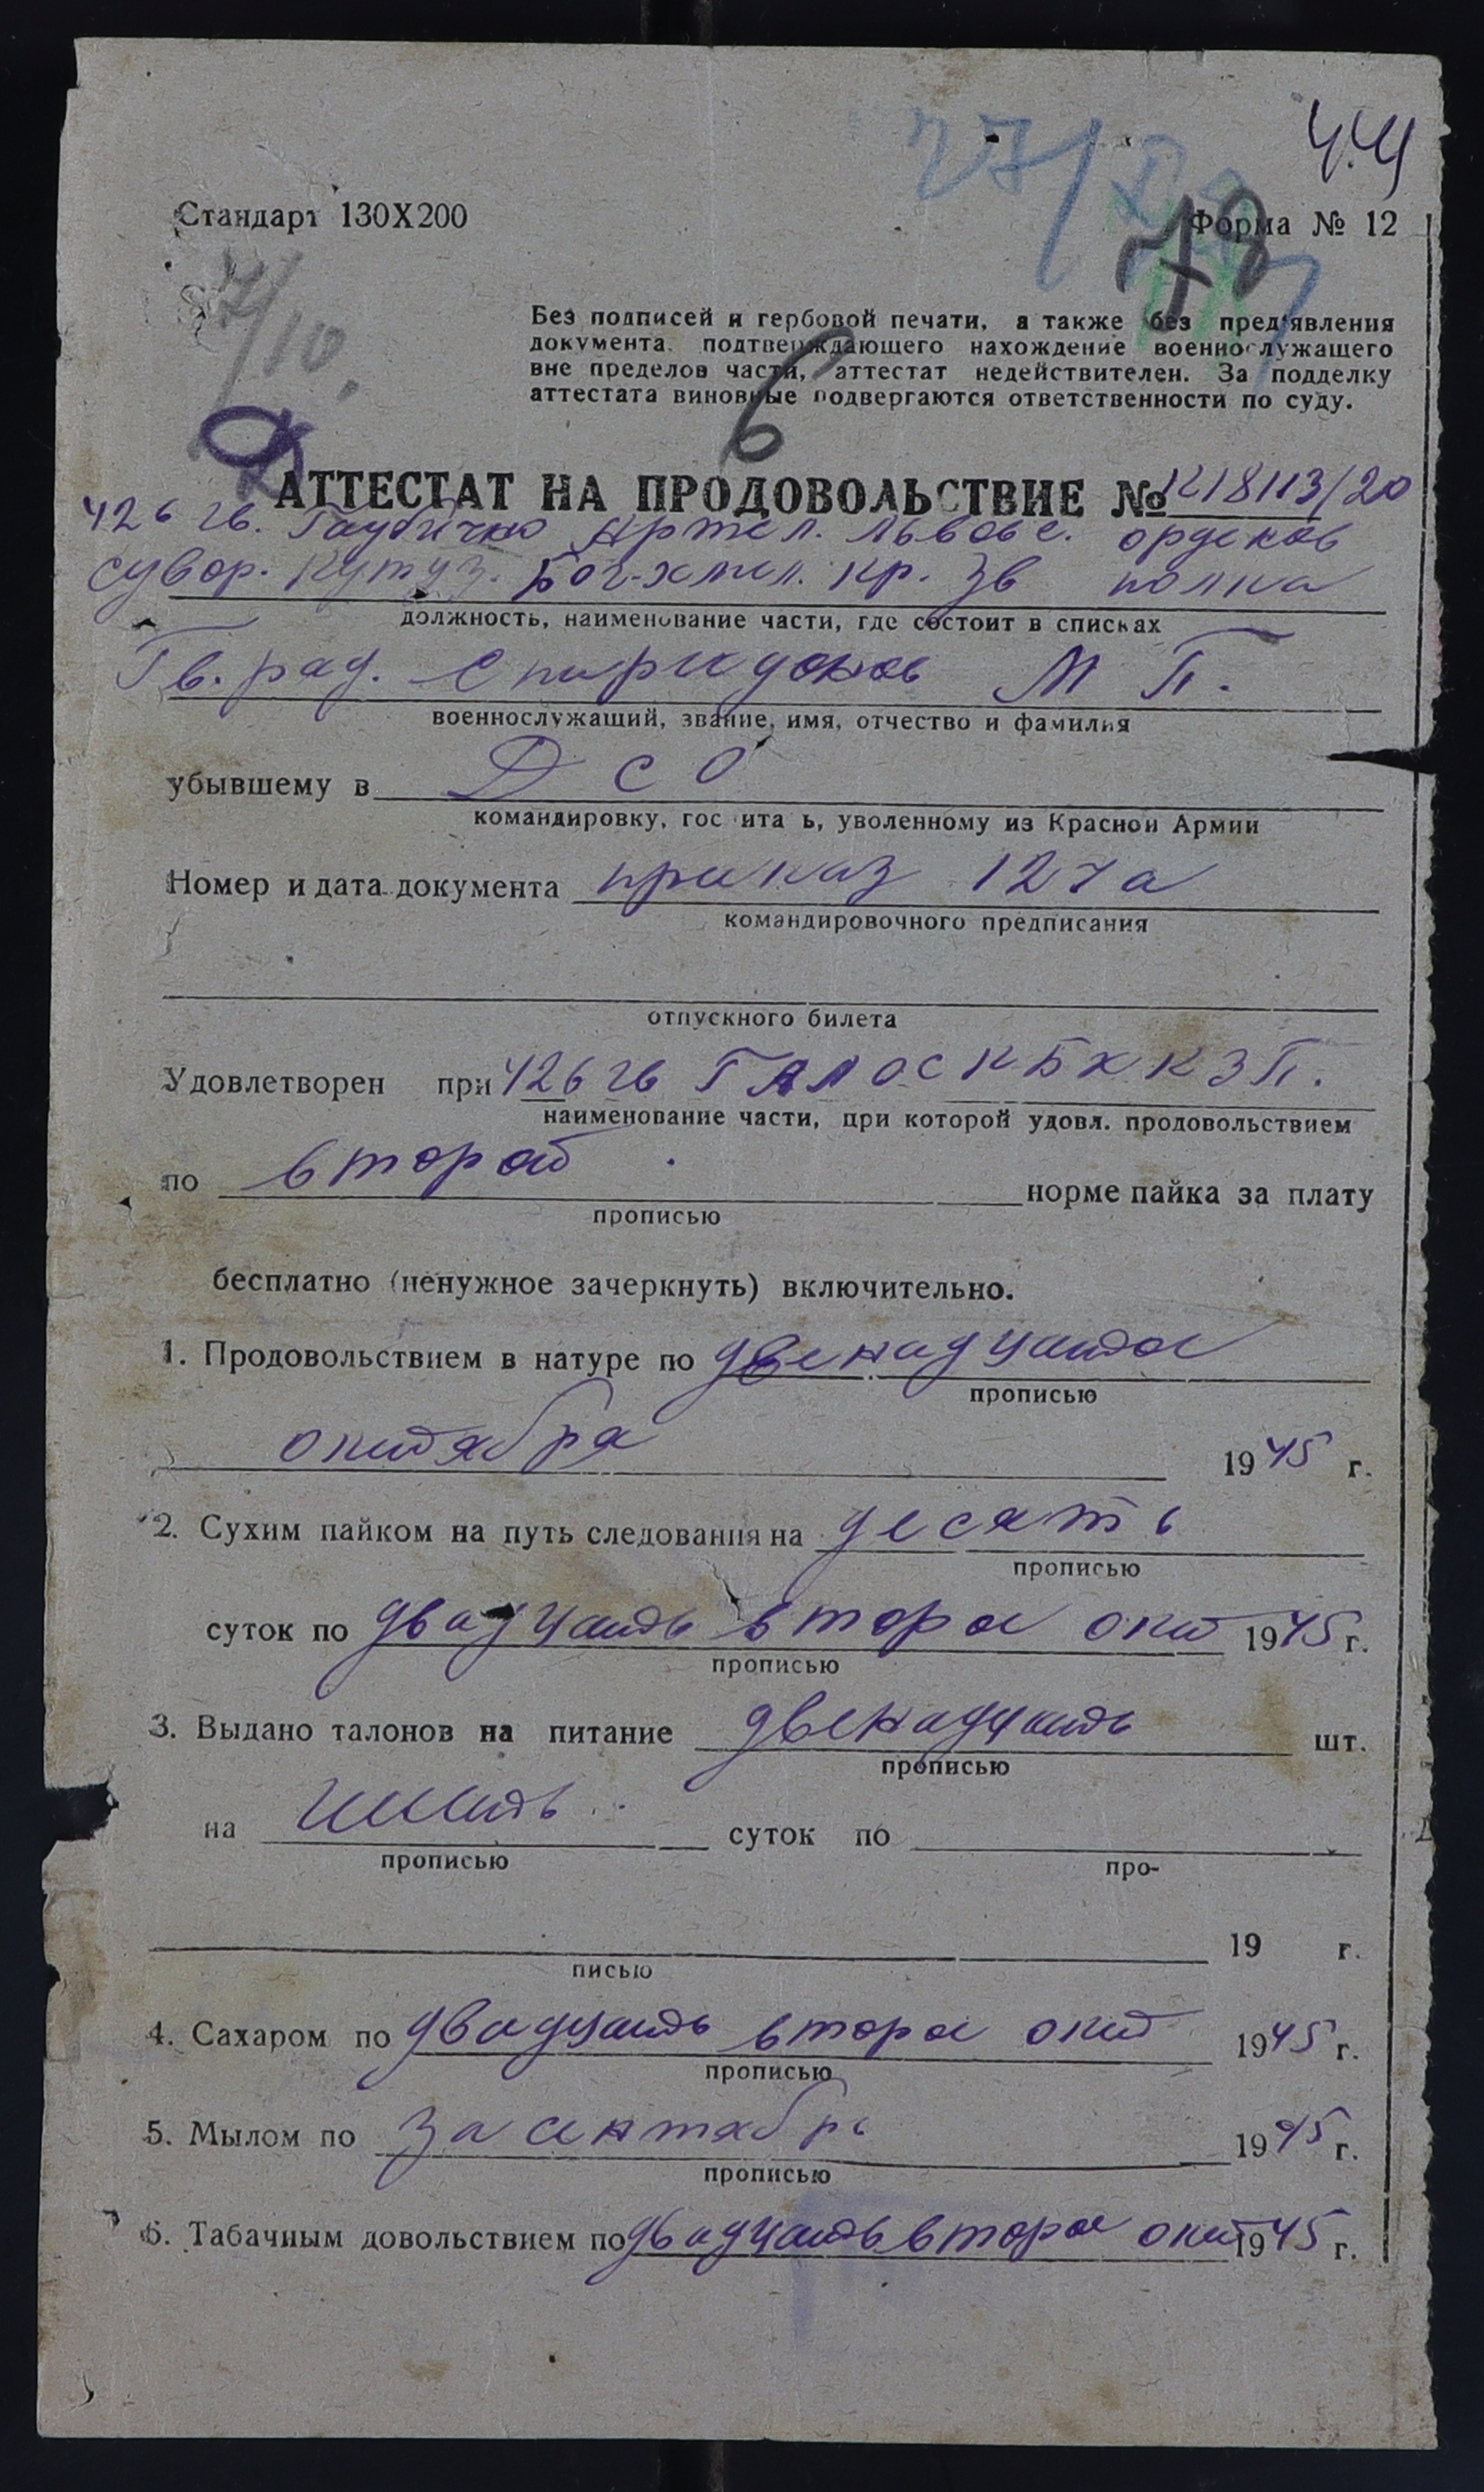 Ч.Ч
27/X
78
Стандарт 130X200
Форма № 12
7/10.
Без подписей и гербовой печати, а также без пред'явления
документа. подтверждающего нахождение военнослужащего
вне пределов части, аттестат недействителен. За подделку
аттестата виновные подвергаются ответственности по суду.
6
АТТЕСТАТ НА ПРОДОВОЛЬСТВИЕ № К18113/20
426 гв. Гаубично Артил. Львовс. орденов
Сувор. Кутуз. Бог-хмел. кр. Зв полка
должность, наименование части, где состоит в списках
Гв. ряд. Спиридонов М П.
военнослужащий, звание, имя, отчество и фамилия
убывшему в Д С О
командировку, гос ита ь, уволенному из Красной Армии
Номер и дата документа приказ 127а
командировочного предписания
отпускного билета
Удовлетворен при 426 гв ГАЛОСКБХКЗП.
наименование части, при которой удовл. продовольствием
по второй норме пайка за плату
прописью
бесплатно (ненужное зачеркнуть) включительно.
1. Продовольствием в натуре по двенадцатое
прописью
октября 1945 г.
2. Сухим пайком на путь следования на десять
прописью
суток по двадцать второе окт 1945 г.
прописью
3. Выдано талонов на питание двенадцать шт.
прописью
на шесть суток по
прописью про-
19 г.
писью
4. Сахаром по двадцать второе окт 1945 г.
прописью
5. Мылом по за сентябрь 1945 г.
прописью
6. Табачным довольствием по двадцать второе окт 1945 г.